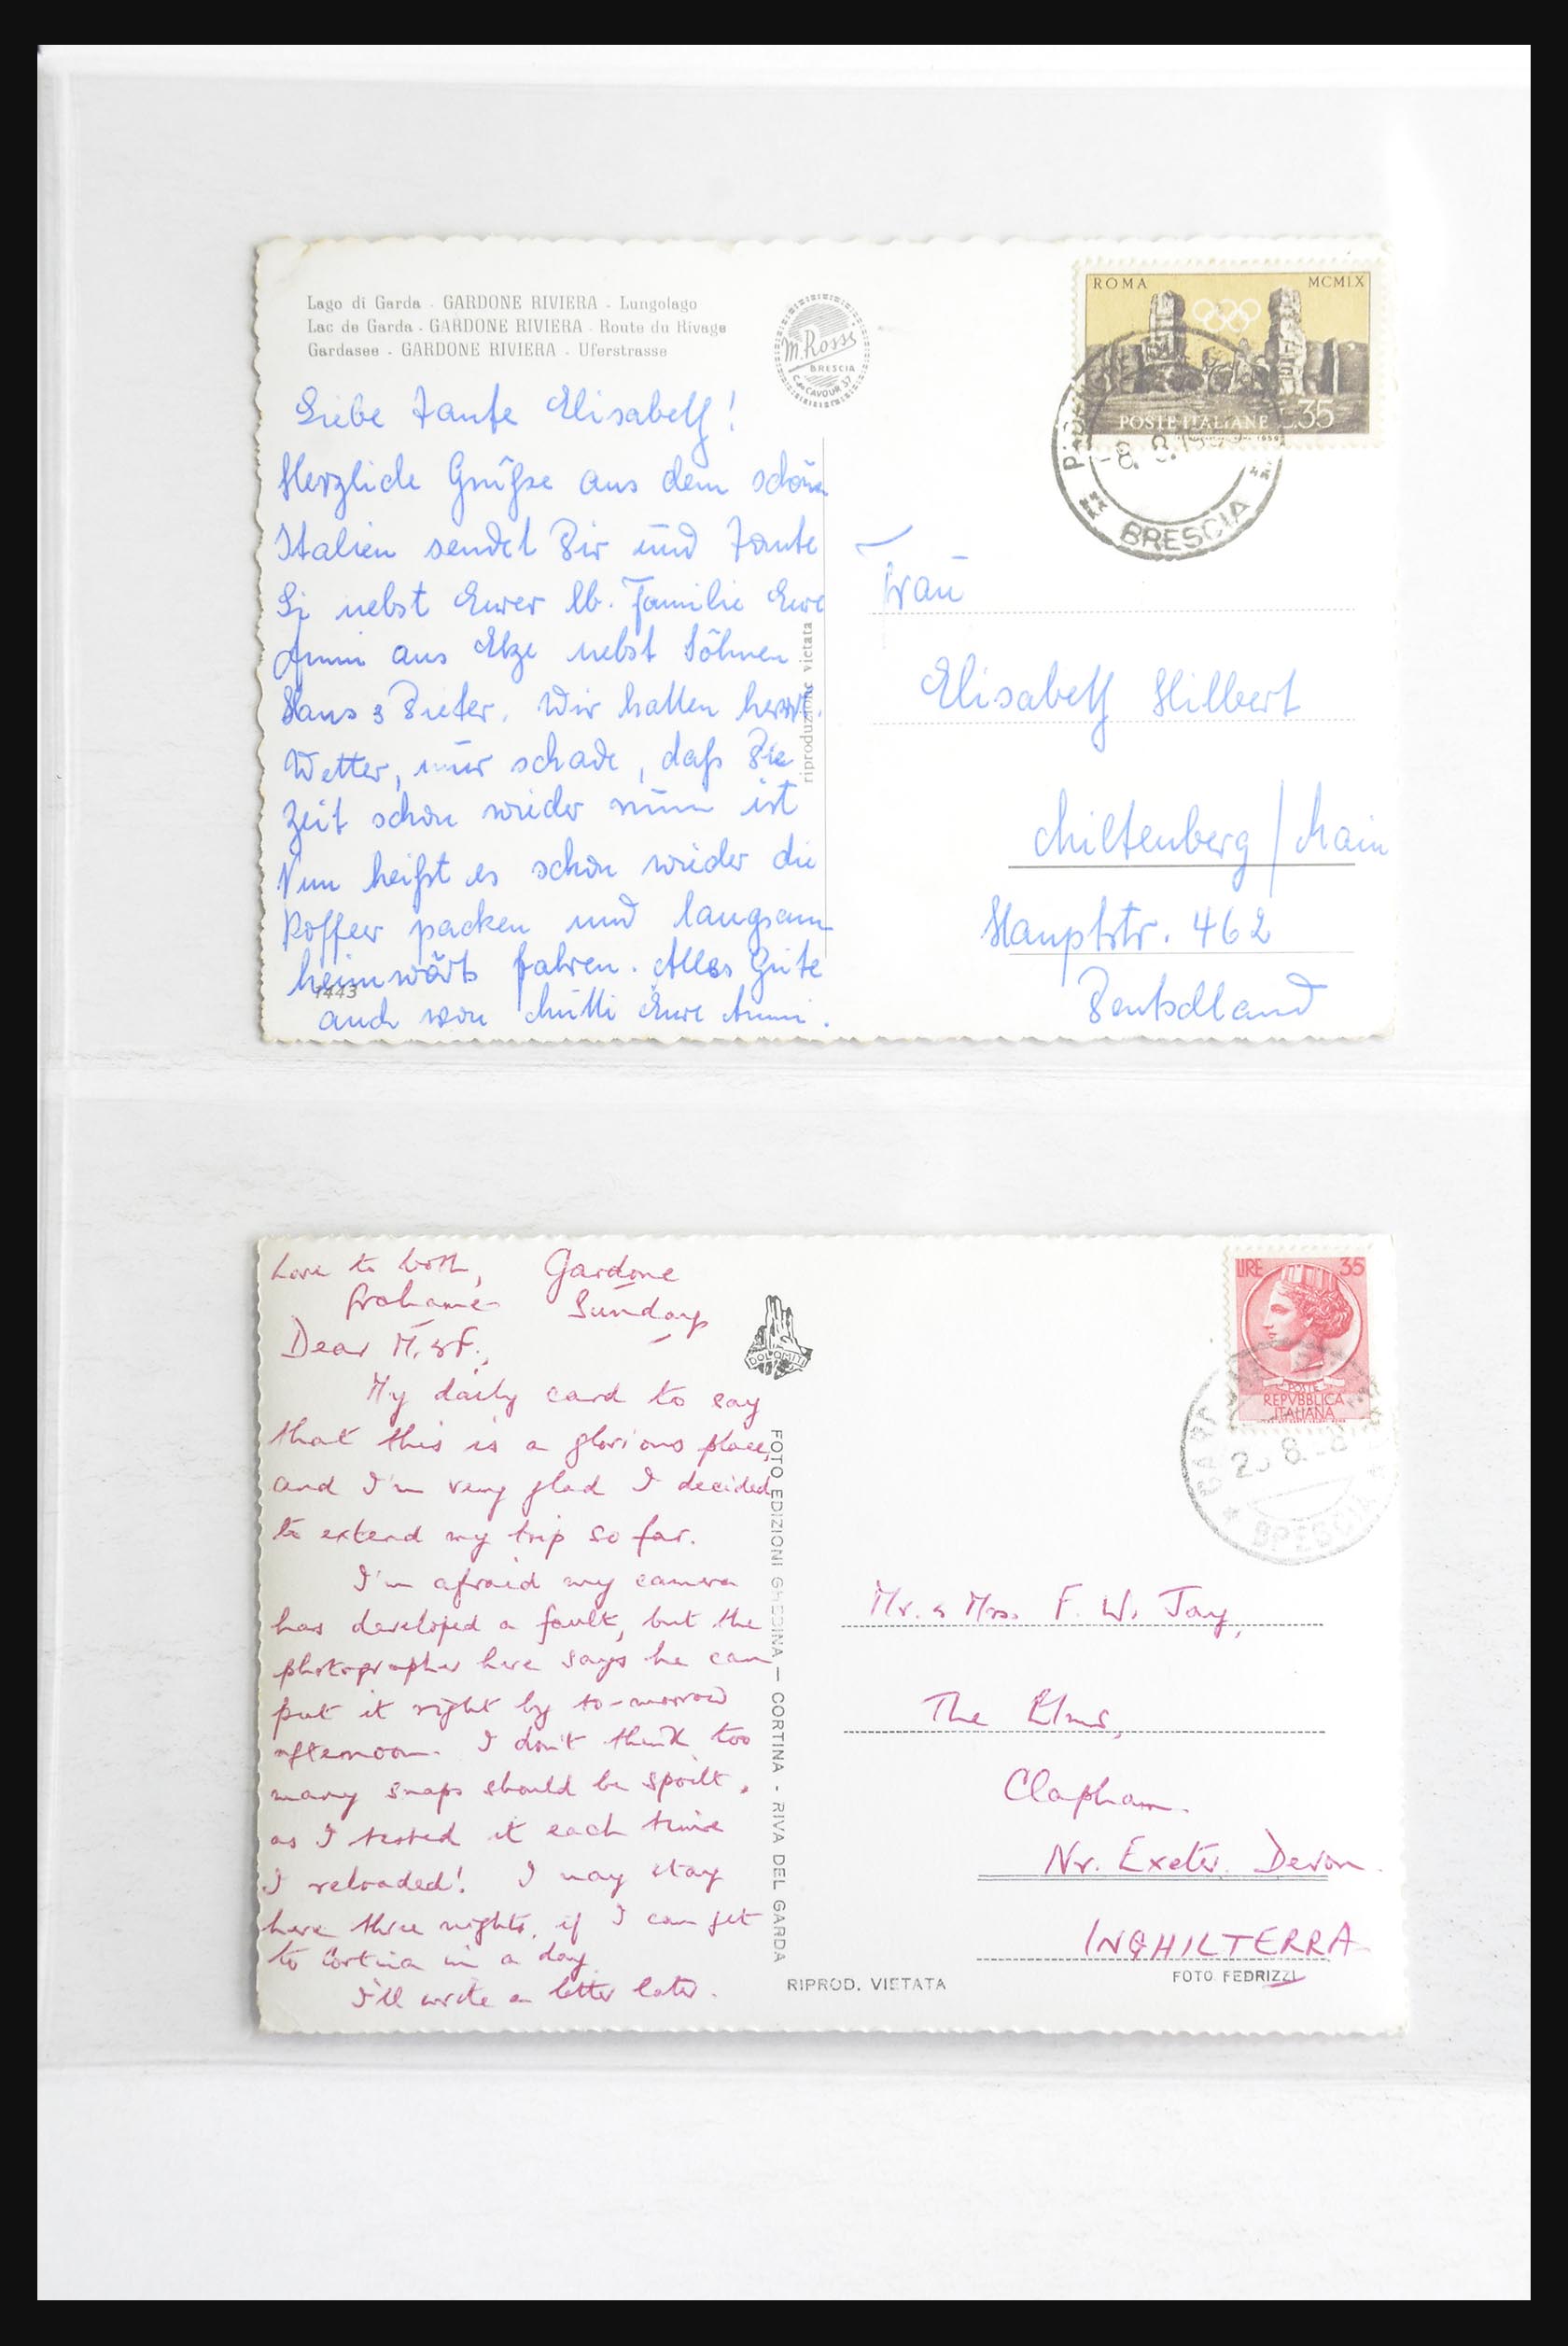 Lago di Garda - GARDONE RIVIERA - Lungolago
Lac de Garda - GARDONE RIVIERA - Route du Rivage
Gardasee - GARDONE RIVIERA - Uferstrasse
M. Rossi
BRESCIA
C.so CAVOUR 37
ROMA MCMLX
POSTE ITALIANE L.35
BRESCIA
Liebe Tante Elisabeth!
Herzliche Grüße aus dem schönen
Italien sendet Dir und Tante
nebst Eurer lb. Familie Eure
Anni aus nebst Söhnen
Hans & Dieter. Wir hatten herrl.
Wetter, nur schade, daß die
Zeit schon wieder um ist
Nun heißt es schon wieder die
Koffer packen und langsam
heimwärts fahren. Alles Gute
auch von Mutti Eure Anni.
1443
riproduzione vietata
Frau
Elisabeth Hilbert
Miltenberg / Main
Hauptstr. 462
Deutschland
Love to both,
Grahame
Gardone
Sunday
Dear M. & F.,
My daily card to say
that this is a glorious place,
and I'm very glad I decided
to extend my trip so far.
I'm afraid my camera
has developed a fault, but the
photographer here says he can
put it right by to-morrow
afternoon. I don't think too
many snaps should be spoilt,
as I tested it each time
I reloaded! I may stay
here three nights, if I can get
to Cortina in a day
I'll write a letter later.
DOLOMITI
FOTO EDIZIONI GHEDINA — CORTINA - RIVA DEL GARDA
LIRE 35
POSTE
REPVBBLICA
ITALIANA
BRESCIA
Mr. & Mrs. F. W. Jay,
The Elms,
Clapham.
Nr. Exeter. Devon.
INGHILTERRA
RIPROD. VIETATA
FOTO FEDRIZZI